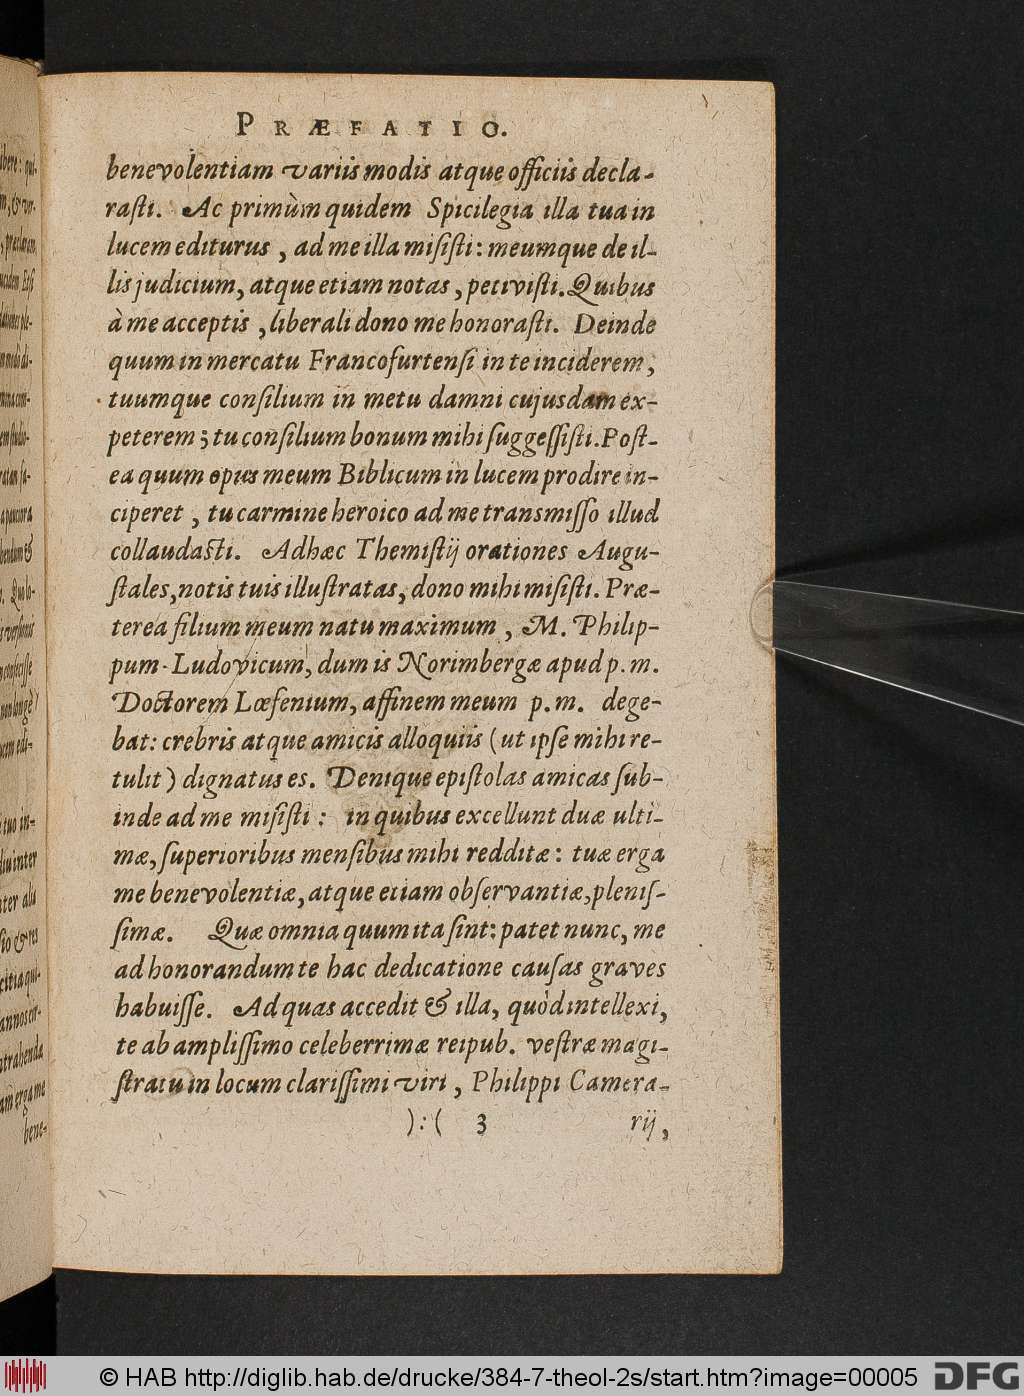 PRÆFATIO.
benevolentiam variis modis atque officiis decla-
rasti. Ac primùm quidem Spicilegia illa tua in
lucem editurus, ad me illa misisti: meumque de il-
lis judicium, atque etiam notas, petivisti. Quibus
à me acceptis, liberali dono me honorasti. Deinde
quum in mercatu Francofurtensi in te inciderem,
tuumque consilium in metu damni cujusdam ex-
peterem; tu consilium bonum mihi suggessisti. Post-
ea quum opus meum Biblicum in lucem prodire in-
ciperet, tu carmine heroico ad me transmisso illud
collaudasti. Adhæc Themistij orationes Augu-
stales, notis tuis illustratas, dono mihi misisti. Præ-
terea filium meum natu maximum, M. Philip-
pum-Ludovicum, dum is Norimbergæ apud p.m.
Doctorem Lœfenium, affinem meum p.m. dege-
bat: crebris atque amicis alloquiis (ut ipse mihi re-
tulit) dignatus es. Denique epistolas amicas sub-
inde ad me misisti: in quibus excellunt duæ ulti-
mæ, superioribus mensibus mihi redditæ: tuæ erga
me benevolentiæ, atque etiam observantiæ, plenis-
simæ. Quæ omnia quum ita sint: patet nunc, me
ad honorandum te hac dedicatione causas graves
habuisse. Ad quas accedit & illa, quòd intellexi,
te ab amplissimo celeberrimæ reipub. vestræ magi-
stratu in locum clarissimi viri, Philippi Camera-
):( 3 rij,
© HAB http://diglib.hab.de/drucke/384-7-theol-2s/start.htm?image=00005
DFG